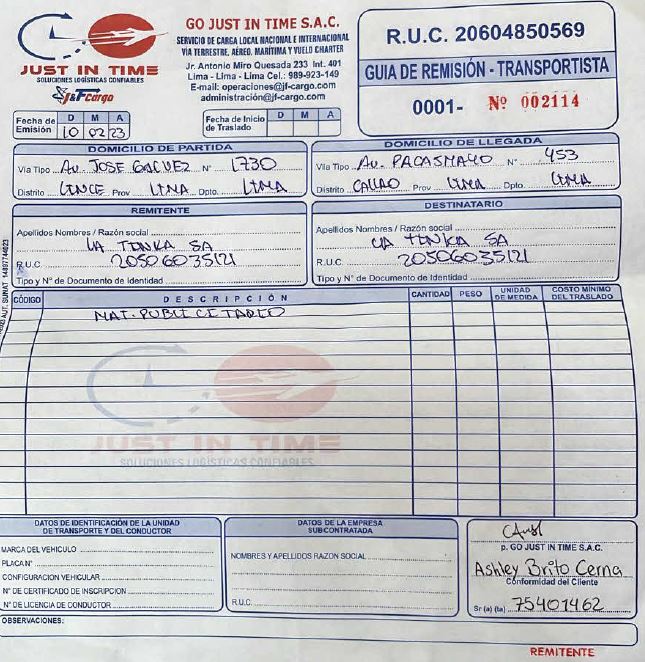 GO JUST IN TIME S.A.C.
SERVICIO DE CARGA LOCAL NACIONAL E INTERNACIONAL
VIA TERRESTRE, AEREO, MARÍTIMA Y VUELO CHARTER
Jr. Antonio Miro Quesada 233 Int. 401
Lima - Lima - Lima Cel.: 989-923-149
E-mail: operaciones@jf-cargo.com
administración@jf-cargo.com
JUST IN TIME
SOLUCIONES LOGÍSTICAS CONFIABLES
J&F Cargo
R.U.C. 20604850569
GUIA DE REMISIÓN - TRANSPORTISTA
0001- Nº 002114
Fecha de Emisión D M A
10 02 23
Fecha de Inicio de Traslado D M A
DOMICILIO DE PARTIDA
Vía Tipo AV. JOSE GALVEZ N° 1730
Distrito LINCE Prov LIMA Dpto. LIMA
DOMICILIO DE LLEGADA
Vía Tipo AV. PACASMAYO N° 453
Distrito CALLAO Prov LIMA Dpto. LIMA
REMITENTE
Apellidos Nombres / Razón social
LA TINKA SA
R.U.C. 20506035121
Tipo y N° de Documento de Identidad
DESTINATARIO
Apellidos Nombres / Razón social
LA TINKA SA
R.U.C. 20506035121
Tipo y N° de Documento de Identidad
CÓDIGO DESCRIPCIÓN CANTIDAD PESO UNIDAD DE MEDIDA COSTO MÍNIMO DEL TRASLADO
MAT. PUBLICITARIO
JUST IN TIME
SOLUCIONES LOGÍSTICAS CONFIABLES
DATOS DE IDENTIFICACIÓN DE LA UNIDAD
DE TRANSPORTE Y DEL CONDUCTOR
MARCA DEL VEHICULO
PLACA N°
CONFIGURACION VEHICULAR
N° DE CERTIFICADO DE INSCRIPCION
N° DE LICENCIA DE CONDUCTOR
DATOS DE LA EMPRESA
SUBCONTRATADA
NOMBRES Y APELLIDOS RAZON SOCIAL
R.U.C.
p. GO JUST IN TIME S.A.C.
Ashley Brito Cerna
Conformidad del Cliente
Sr (a) (ta) 75401462
OBSERVACIONES:
REMITENTE